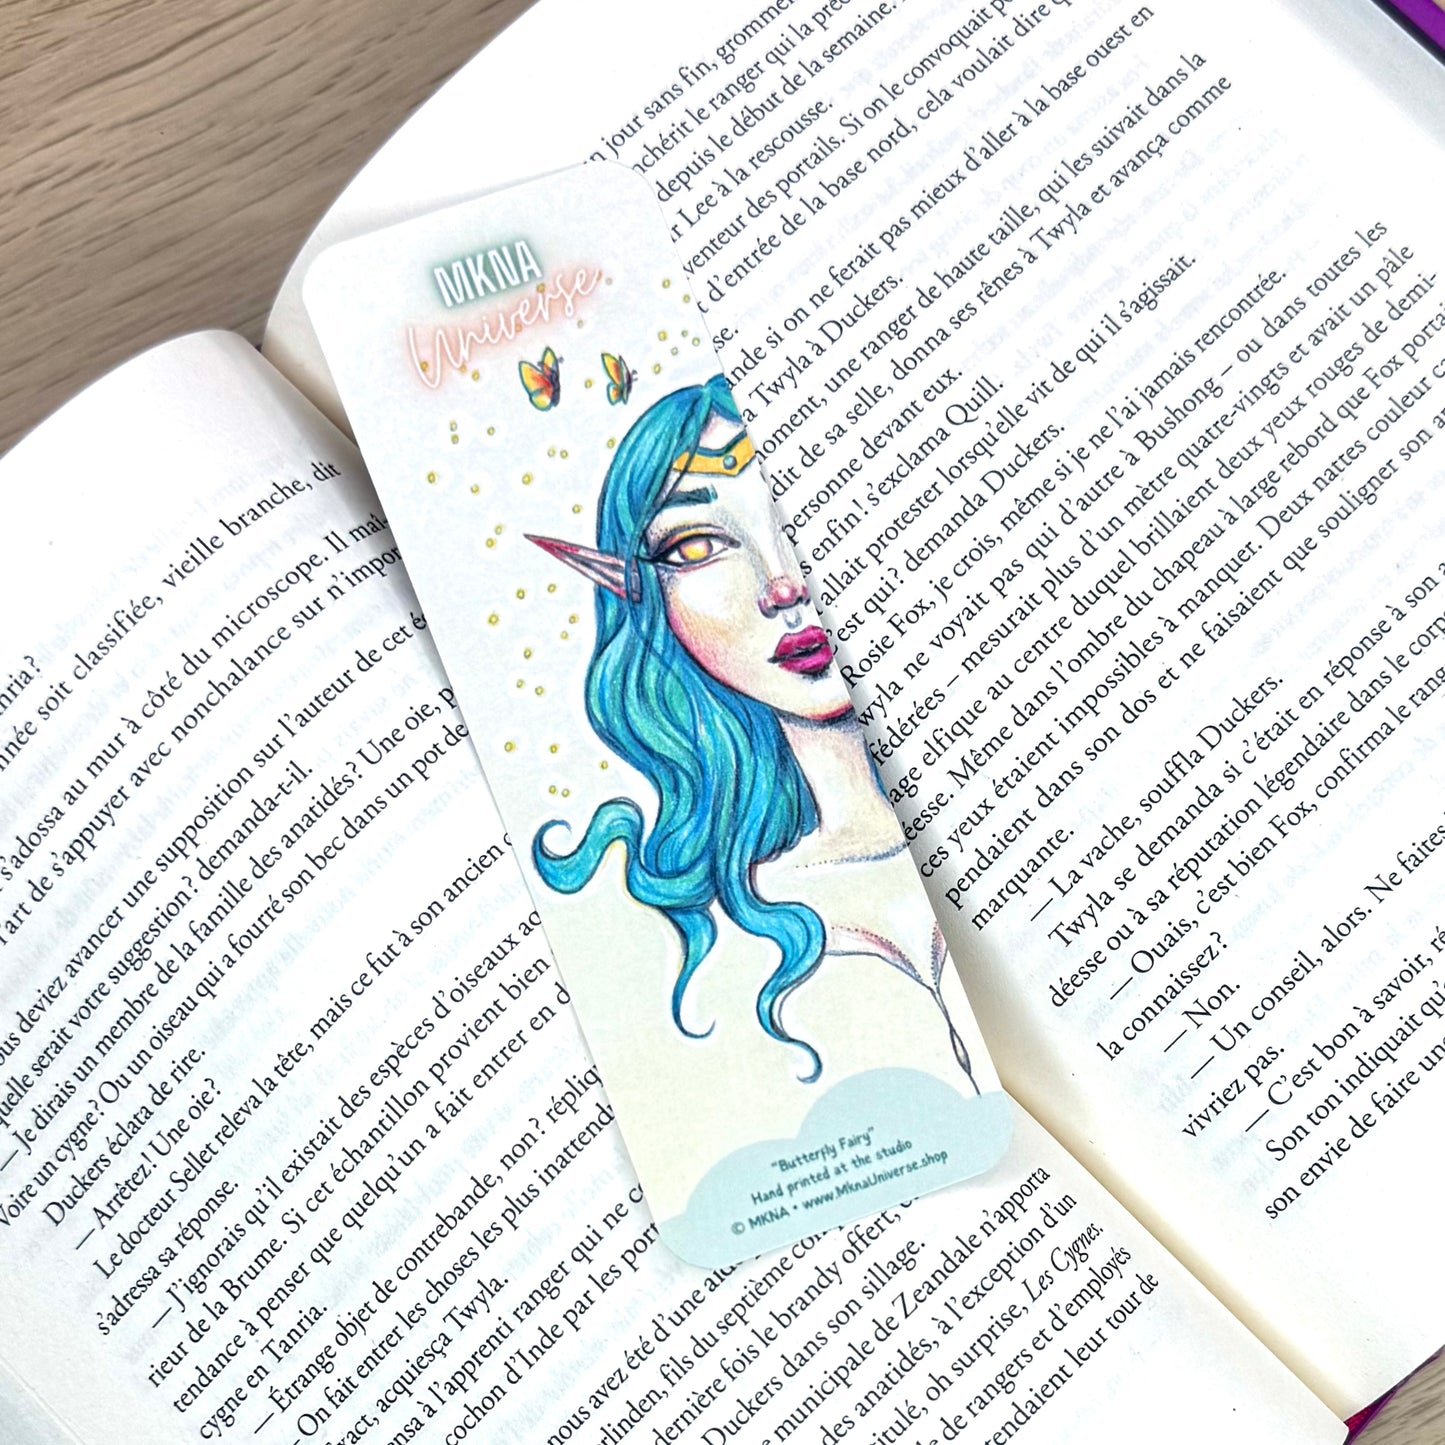 anria?
nnée soit classifiée, vieille branche, dit
s'adossa au mur à côté du microscope. Il maî-
l'art de s'appuyer avec nonchalance sur n'impor
ous deviez avancer une supposition sur l'auteur de cet
quelle serait votre suggestion? demanda-t-il.
— Je dirais un membre de la famille des anatidés? Une oie, p
Voire un cygne? Ou un oiseau qui a fourré son bec dans un pot de
Duckers éclata de rire.
— Arrêtez! Une oie?
Le docteur Sellet releva la tête, mais ce fut à son ancien
s'adressa sa réponse.
— J'ignorais qu'il existait des espèces d'oiseaux
rieur de la Brume. Si cet échantillon provient bien
tendance à penser que quelqu'un a fait entrer en d
cygne en Tanria.
— Étrange objet de contrebande, non? répliq
— On fait entrer les choses les plus inattendu
xact, acquiesça Twyla.
nsa à l'apprenti ranger qui ne
cochon d'Inde par les por
nous avez été d'une
rlinden, fils du septième
dernière fois le brandy offert,
Duckers dans son sillage.
e municipale de Zeandale n'apporta
des anatidés, à l'exception d'un
itulé, oh surprise, Les Cygnes.
le de rangers et d'employés
tendaient leur tour de
MKNA
Universe
"Butterfly Fairy"
Hand printed at the studio
© MKNA • www.MknaUniverse.shop
n jour sans fin, grommel
nchérit le ranger qui la
depuis le début de la semaine.
r Lee à la rescousse.
venteur des portails. Si on le convoquait
t d'entrée de la base nord, cela voulait dire
se.
ande si on ne ferait pas mieux d'aller à la base ouest en
a Twyla à Duckers.
moment, une ranger de haute taille, qui les suivait dans la
dit de sa selle, donna ses rênes à Twyla et avança comme
personne devant eux.
s enfin! s'exclama Quill.
allait protester lorsqu'elle vit de qui il s'agissait.
'est qui? demanda Duckers.
Rosie Fox, je crois, même si je ne l'ai jamais rencontrée.
wyla ne voyait pas qui d'autre à Bushong – ou dans toutes les
fédérées – mesurait plus d'un mètre quatre-vingts et avait un pâle
age elfique au centre duquel brillaient deux yeux rouges de demi-
éesse. Même dans l'ombre du chapeau à large rebord que Fox portai
ces yeux étaient impossibles à manquer. Deux nattes couleur
pendaient dans son dos et ne faisaient que souligner son
marquante.
— La vache, souffla Duckers.
Twyla se demanda si c'était en réponse à son
déesse ou à sa réputation légendaire dans le corp
— Ouais, c'est bien Fox, confirma le rang
la connaissez?
— Non.
— Un conseil, alors. Ne faites
vivriez pas.
— C'est bon à savoir, ré
Son ton indiquait qu'
son envie de faire une